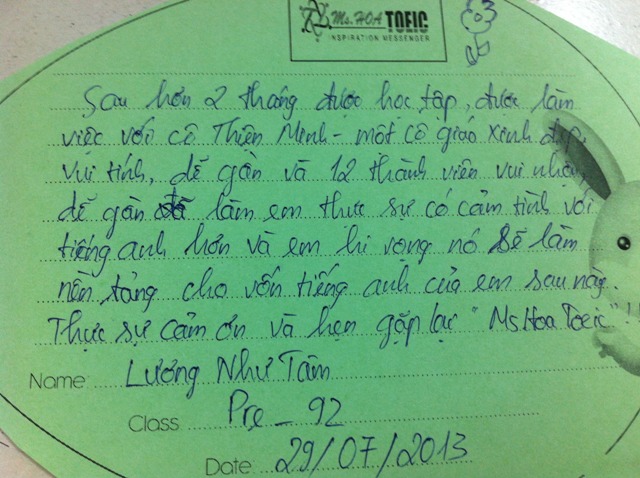 Ms. HOA TOEIC
INSPIRATION MESSENGER
Sau hơn 2 tháng được học tập, được làm
việc với cô Thiện Minh - một cô giáo xinh đẹp,
vui tính, dễ gần và 12 thành viên vui nhộn,
dễ gần đã làm em thực sự có cảm tình với
tiếng anh hơn và em hi vọng nó sẽ làm
nền tảng cho vốn tiếng anh của em sau này.
Thực sự cảm ơn và hẹn gặp lại "Ms Hoa Toeic"!
Name Lương Như Tâm
Class Pre_92
Date 29/07/2013